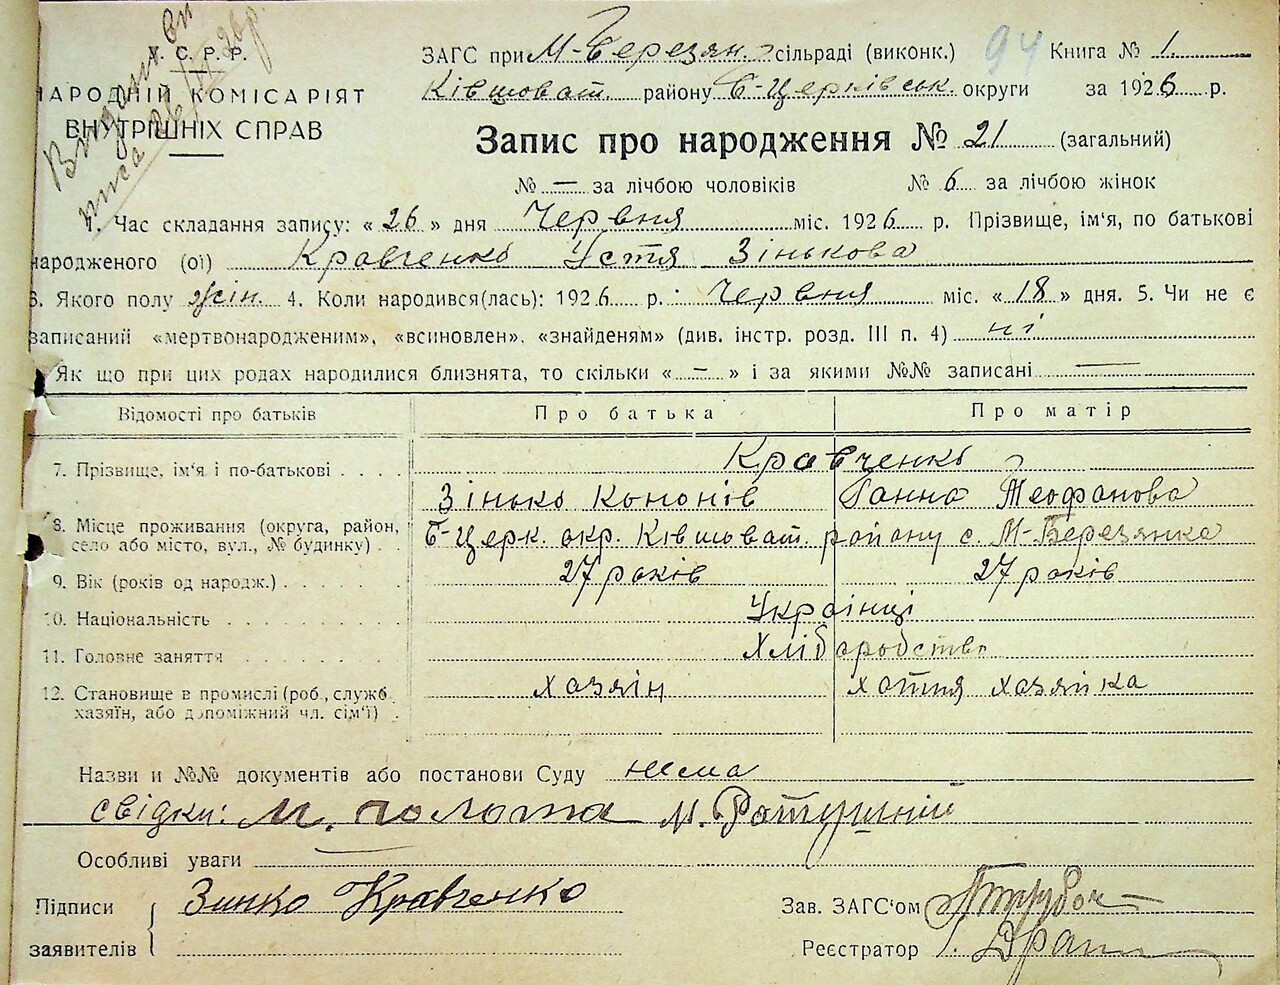 У.С.Р.Р.
НАРОДНІЙ КОМІСАРІЯТ
ВНУТРІШНІХ СПРАВ
ЗАГС при М-Березян. сільраді (виконк.) 94 Книга № 1
Ківшоват. району Б-Церківськ округи за 1926 р.
Запис про народження № 21 (загальний)
№ — за лічбою чоловіків № 6 за лічбою жінок
1. Час складання запису: «26» дня Червня міс. 1926 р. Прізвище, ім'я, по батькові
народженого (ої) Кравченко Устя Зінькова
3. Якого полу жін. 4. Коли народився(лась): 1926 р. Червня міс. «18» дня. 5. Чи не є
записаний «мертвонародженим», «всиновлен», «знайденям» (див. інстр. розд. III п. 4) ні
Як що при цих родах народилися близнята, то скільки «–» і за якими №№ записані —
Відомості про батьків Про батька Про матір
7. Прізвище, ім'я і по-батькові Кравченко
Зінько Кононів Ганна Теофанова
8. Місце проживання (округа, район,
село або місто, вул., № будинку) Б-Церк. окр. Ківшоват. району с. М-Березянка
9. Вік (років од народж.) 27 років 27 років
10. Національність Українці
11. Головне заняття Хліборобство
12. Становище в промислі (роб., служб. хазяїн хатня хазяйка
хазяїн, або допоміжний чл. сім'ї)
Назви и №№ документів або постанови Суду нема
свідки: М. Полота М. Ратушний
Особливі уваги
Підписи Зинко Кравченко Зав. ЗАГС'ом
заявителів Реєстратор